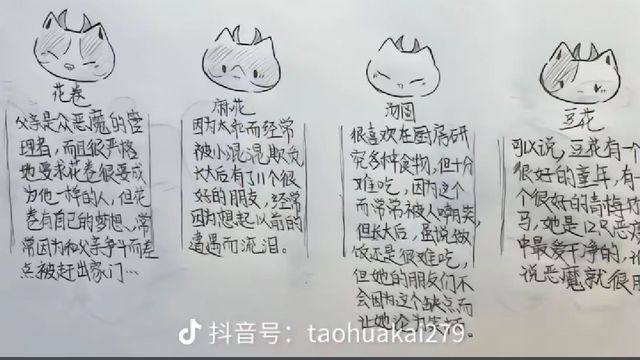 花卷
父亲是众恶魔的管
理者，而且很严格
地要求花卷很要成
为他一样的人，但花
卷有自己的梦想，常
常因为和父亲争斗而差
点被赶出家门…
雨花
因为太乖而经常
被小混混欺负
长大后有了11个很
好的朋友，经常
因为想起以前的
遭遇而流泪。
汤圆
很喜欢在厨房研
究各种食物，但十分
难吃，因为这个
而常常被人嘲笑，
但长大后，虽说做
饭还是很难吃，
但她的朋友们不
会因为这个缺点而
让她
豆花
可以说，豆花有一个
很好的童年，有一
个很好的青梅竹
马，她是12只恶魔
中最爱干净的，
说恶魔就很
抖音号：taohuakai279